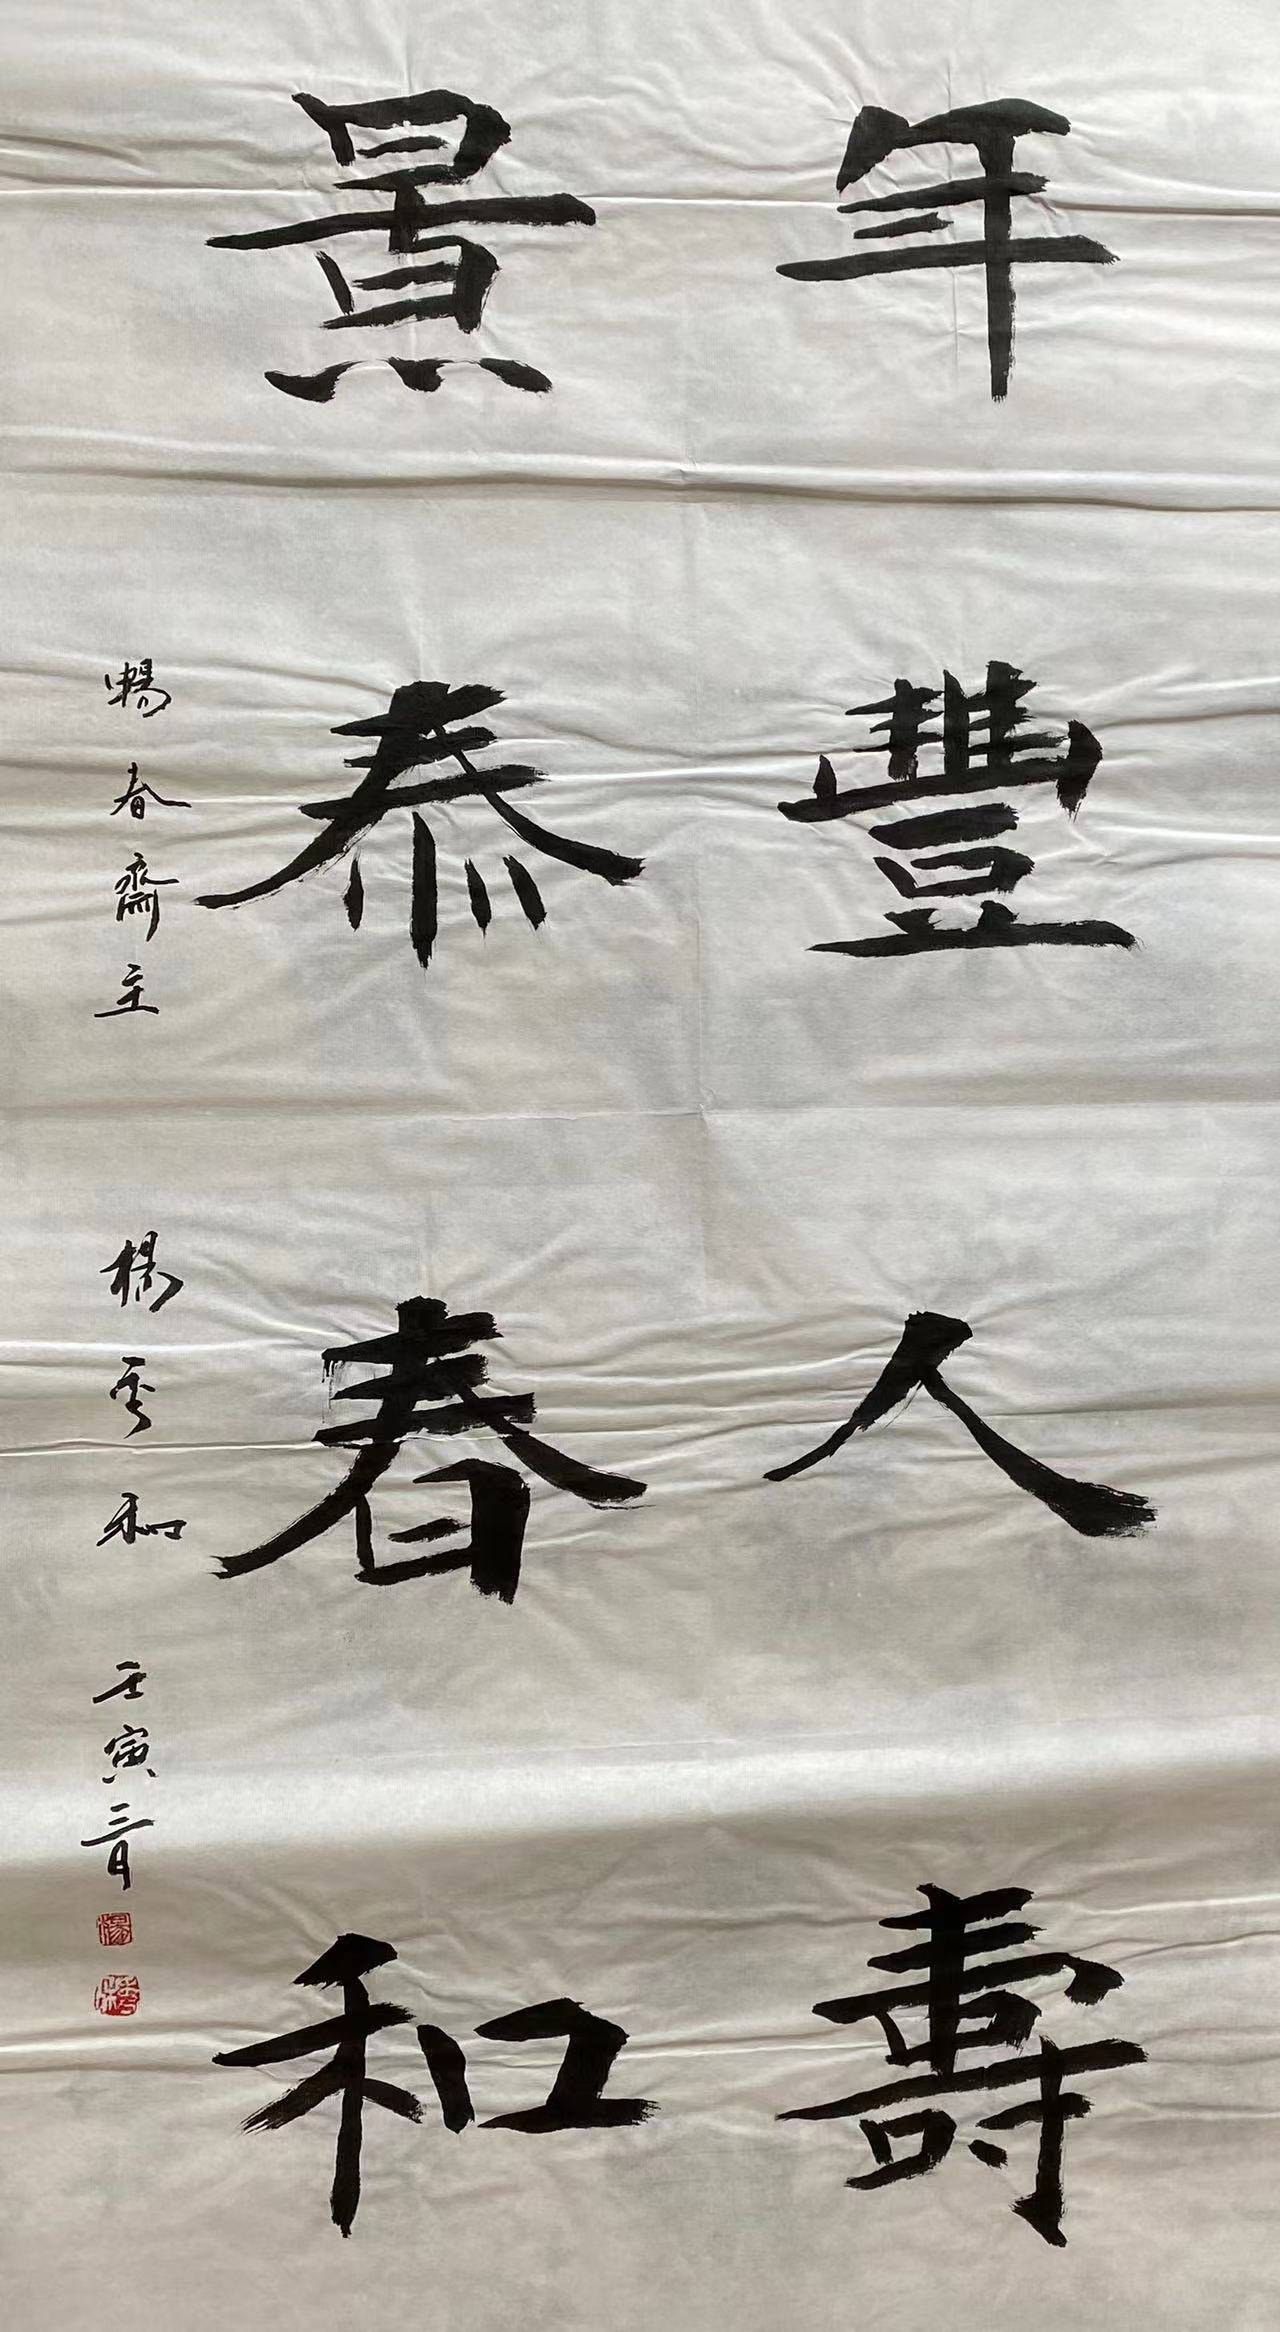 年豐人壽
景泰春和
暢春齋主 楊秀和 壬寅三月